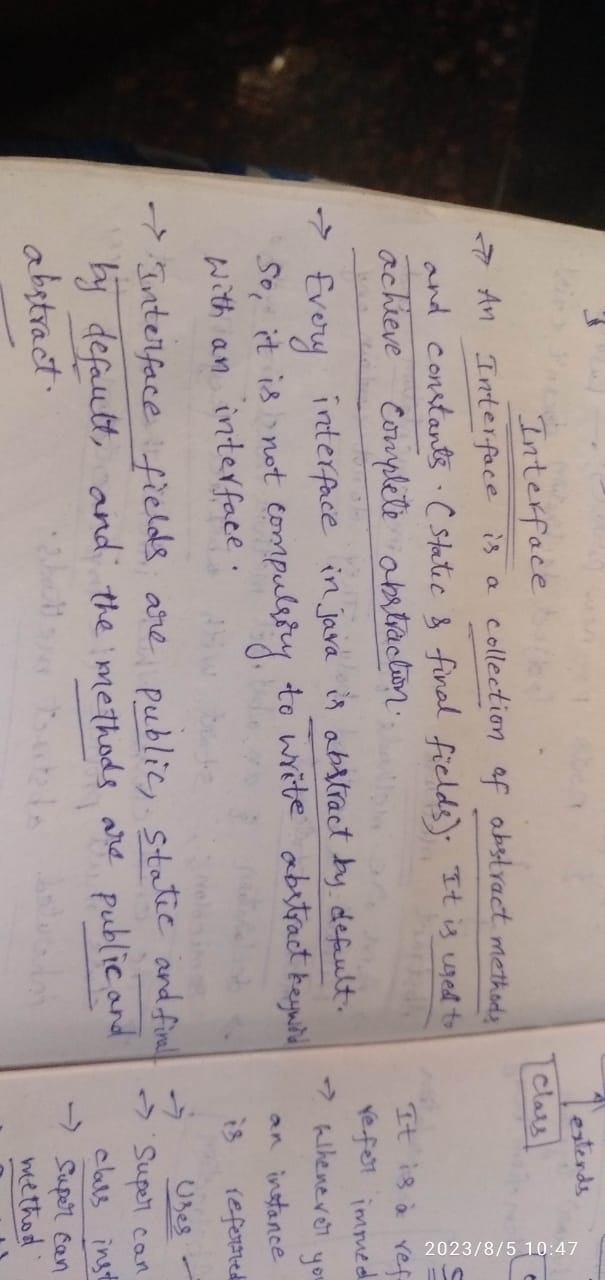 Interface
→ An Interface is a collection of abstract methods
and constants. (static & final fields). It is used to
achieve complete abstraction.
→ Every interface in java is abstract by default.
So, it is not compulsory to write abstract keyword
with an interface.
→ Interface fields are public, static and final
by default, and the methods are public and
abstract.
extends
class
2023/8/5 10:47
It is a ref
refer immed
→ Whenever yo
an instance
is referred
→ Uses
→ Super can
class inst
→ Super can
method